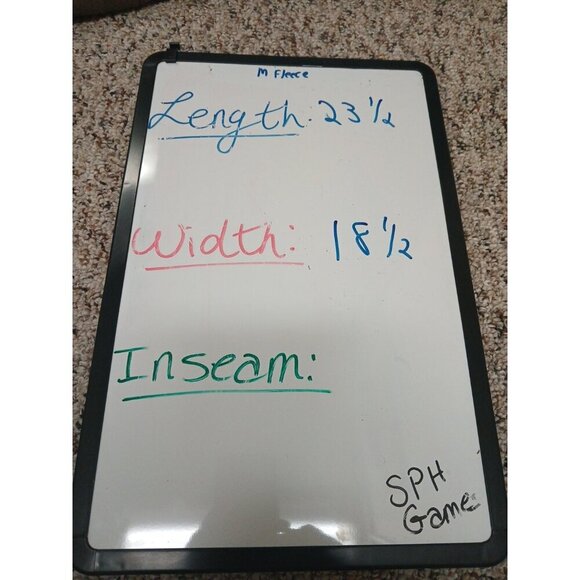 M Fleece
Length: 23 1/2
Width: 18 1/2
Inseam:
SPH
Game